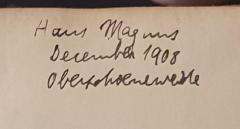 Hans Magnus
December 1908
Oberschoeneweide